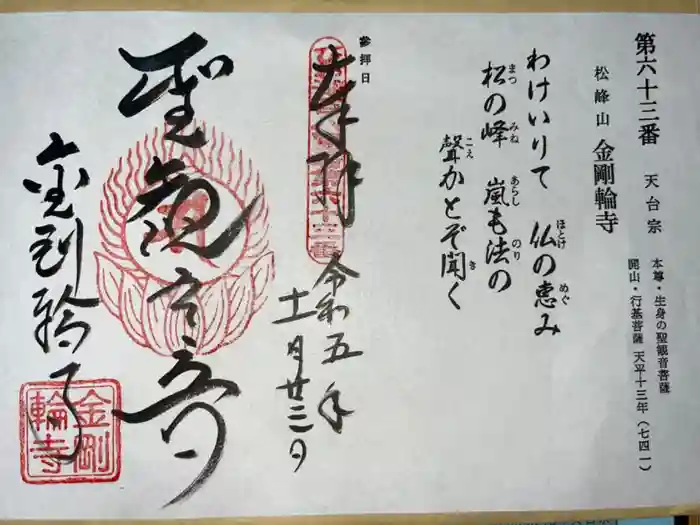 第六十三番　天台宗
本尊・生身の聖観音菩薩
開山・行基菩薩　天平十三年（七四一）
松峰山　金剛輪寺
わけいりて　仏の恵み
ほとけ　めぐ
松の峰　嵐も法の
まつ　みね　あらし　のり
聲かとぞ聞く
こえ　き
参拝日
奉拝
令和五年
十一月廿三日
聖観世音
金剛輪寺
金剛輪寺